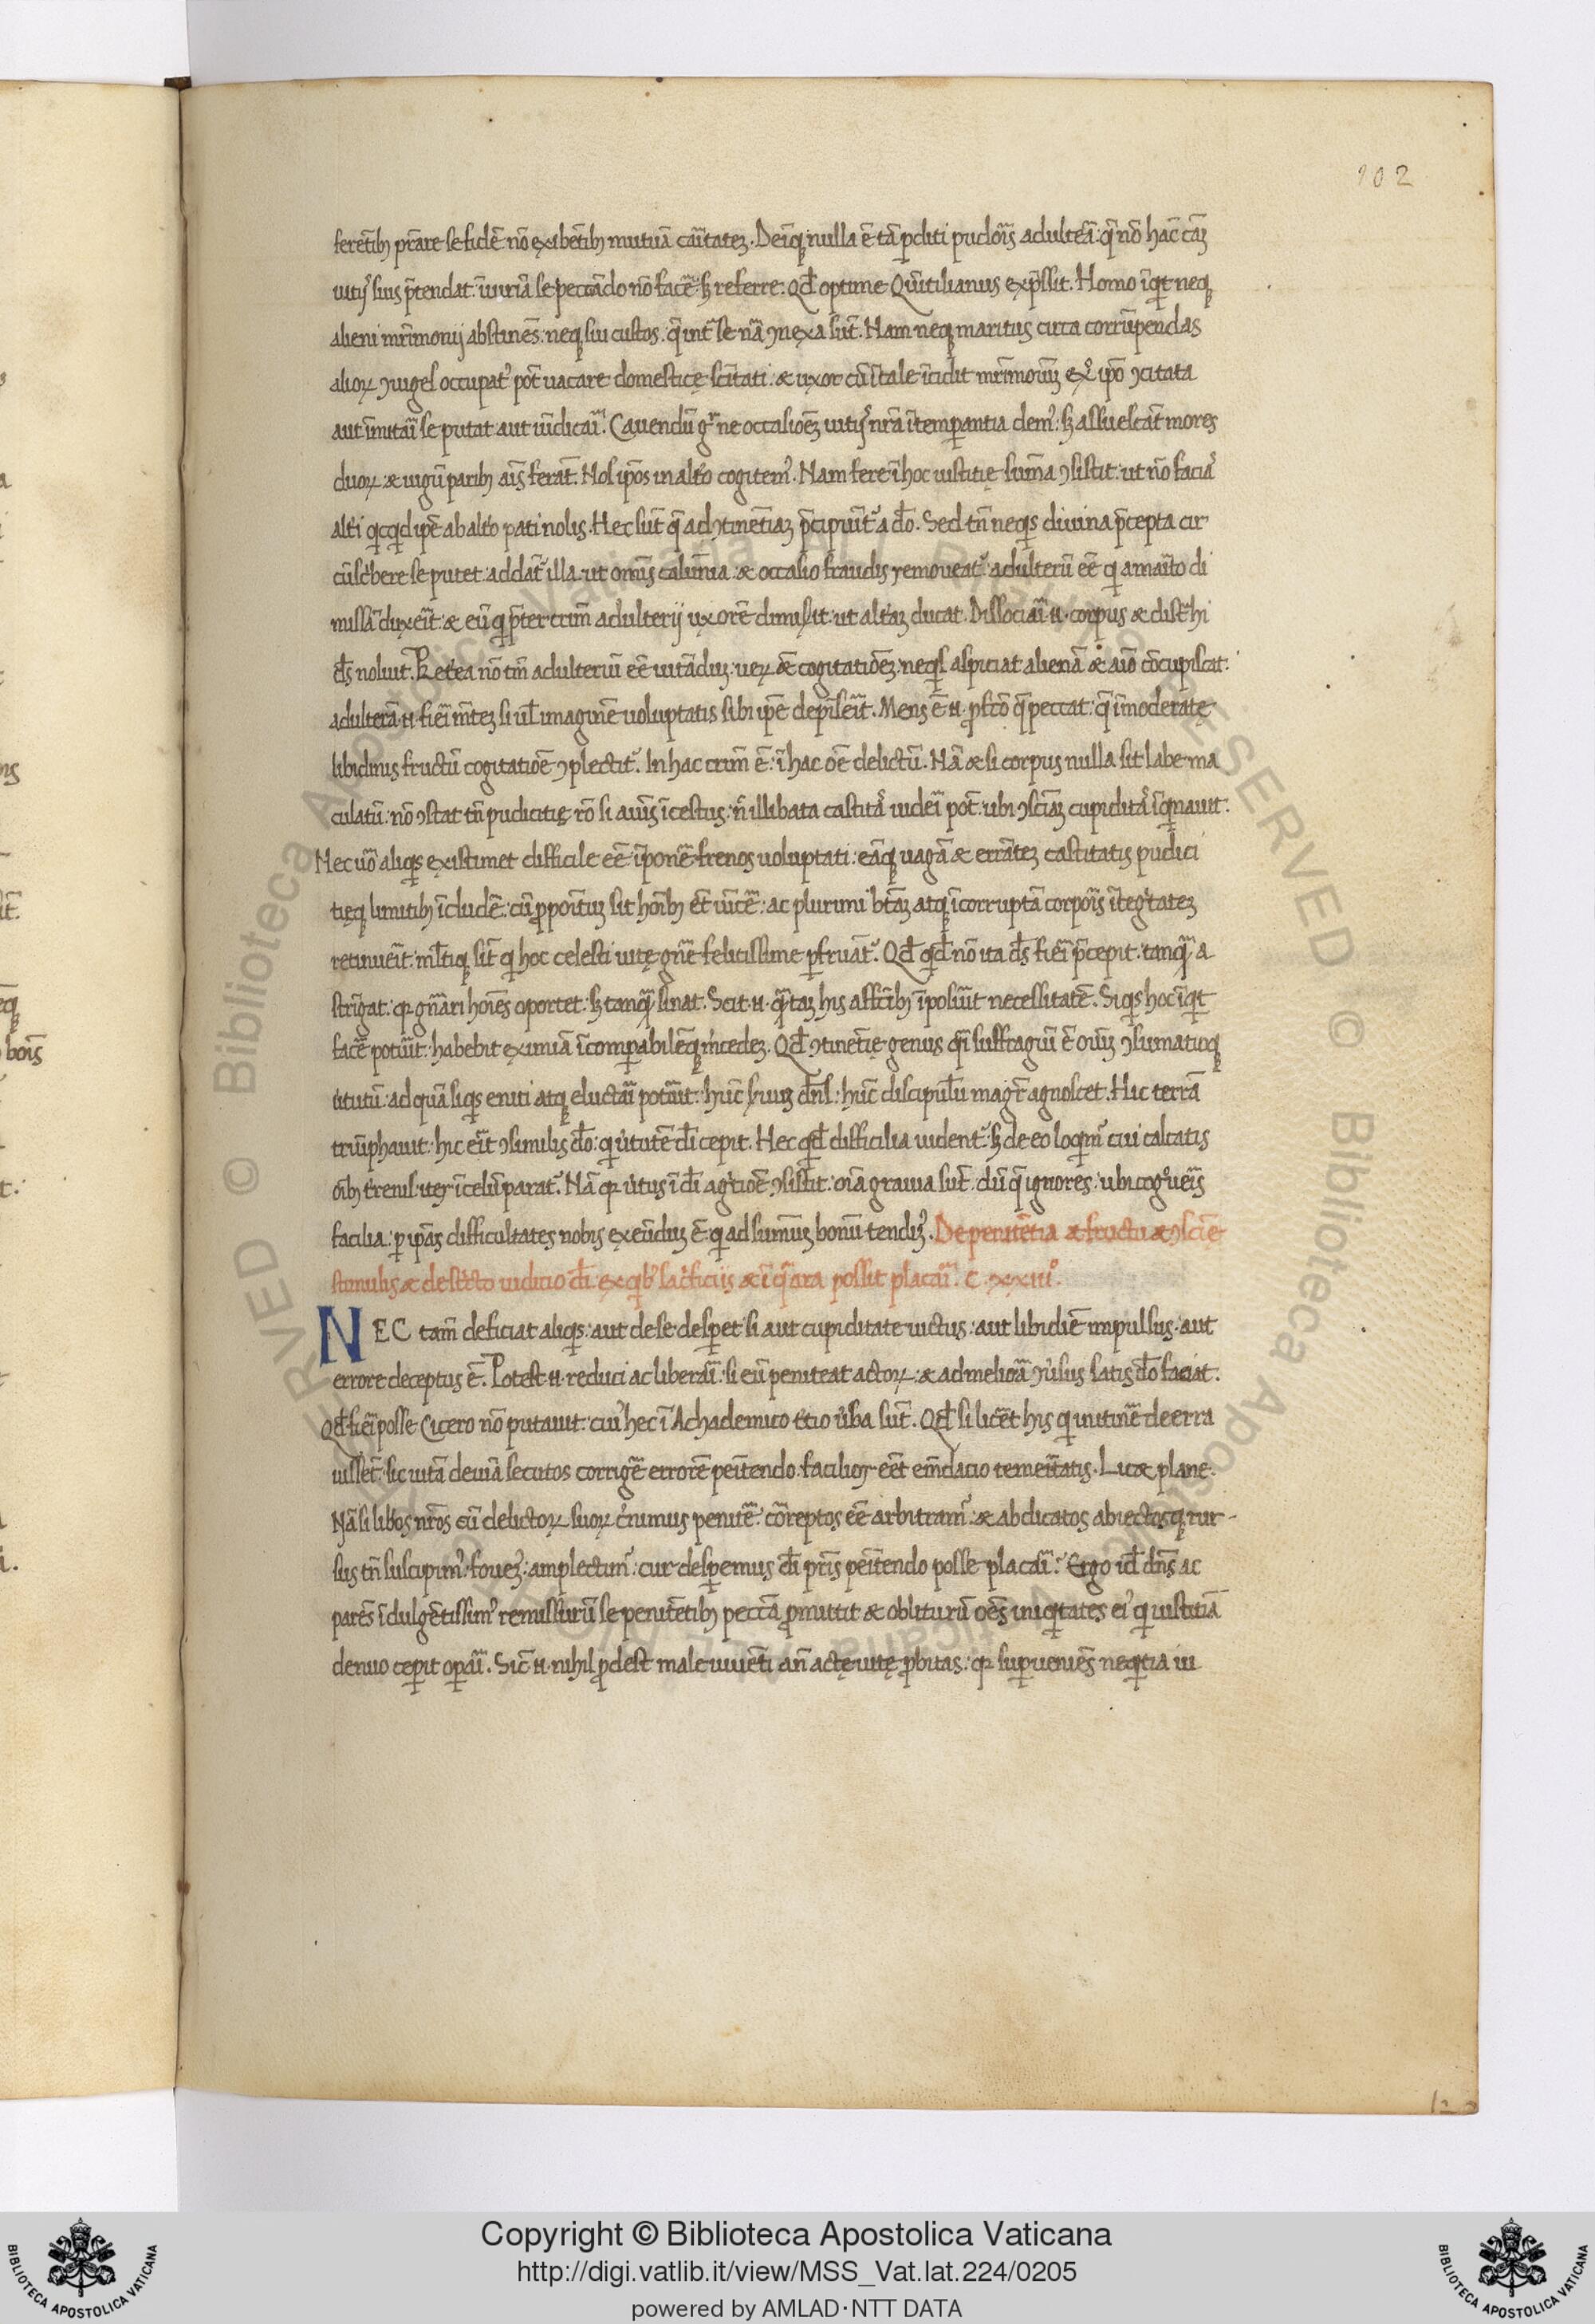 102
ferētib; p̄stare se fidē nō exibētib; mutuā caritatez. Deniq; nulla ē tā pditi pudoris adultera: q̄ nō hāc cāz
uitijs suis p̄tendat: iniuriā se peccādo nō facē: sz referre. Qd̄ optime Quītilianus exp̄ssit. Homo īqt neq;
alieni mr̄imonij abstinēs: neq; sui custos. q̄ int̄ se nā ꝯnexa sūt. Nam neq; maritus circa corrūpendas
alioꝝ ꝯiuges occupatꝰ pōt uacare domesticę sc̄itati: & uxor cū ī tale īcidit mr̄imoniū exº ipō ꝯcitata
aut īmitari se putat aut uīdicari. Cauendū gº ne occasiōez uitijs nr̄a ītemperantia demꝰ: sz assuescāt mores
duoꝝ & iugū parib; ais ferāt. Nos ipōs in alt̄o cogitemꝰ. Nam fere ī hoc iustitię sūma ꝯsistit: ut nō facias
alt̄i qcqd ipē ab alt̄o pati nolis. Hec sūt q̄ ad ꝯtinētiaz p̄cipiūtᷣ a dō. Sed tn̄ neqs diuina p̄cepta cir
cūsc̄bere se putet: addātᷣ illa: ut omīs calūnia: & occasio fraudis remoueatᷣ: adulterū eē q a marito di
missā duxerit: & eū q p̄ter crim̄ adulterij uxorē dimiserit: ut alt̄az ducat. Dissociari .n. corpus & distrahi
ds̄ noluit. Preterea nō tm̄ adulteriū eē uitādū: ueꝝ & cogitatiōez: neqs aspiciat alienā & aīo cōcupiscat:
adulterā .n. fieri mētez si ul̄ imaginē uoluptatis sibi ipē depīxerit. Mens ē .n. ꝓfcō q̄ peccat: q̄ īmoderatę
libidinis fructū cogitatiōe ꝯplectitᷣ. In hac crim̄ ē: ī hac oē delictū. Nā & si corpus nulla sit labe ma
culatū: nō ꝯstat tn̄ pudicitię rō si aīus īcestus: n̄ illibata castitas uideri pōt: ubi ꝯsciāz cupiditas īqnauit:
Nec uō aliqs existimet difficile eē īponē frenos uoluptati: eāq; uagā & errātez castitatis pudici
tięq; limitib; īcludē: cū ꝓpositū sit hoīb; ēt uīcē: ac plurimi btāz atq; īcorruptā corporis ītegritatez
retinuerīt: ml̄tiq; sīt q hoc celesti uitę gn̄e felicissime pfruātᷣ. Qd̄ qd̄ nō ita ds̄ fieri p̄cepit: tanq̄ a
strīgat: qꝛ gn̄ari hoīes oportet: sz tanq̄ sinat. Scit .n. q̄taz his affctib; īposuīt necessitatē. Siqs hoc īqt
facē potuīt: habebit eximiā īcomparabilēq; m̄cedez. Qd̄ ꝯtinētię genus qsi fastigiū ē oīuz ꝯsumatioq;
uirtutū: ad quā siqs eniti atq; eluctari potuīt: hūc seruuz dn̄s: hūc discipulū magr̄ agnoscet. Hic terrā
triūphauit: hic erit ꝯsimilis dō: q uirtutē dī cepit. Hec qd̄ difficilia uidentᷣ: sz de eo loqmᷣ cui calcatis
oīb; t̄renis: iter ī celū paratᷣ. Nā qꝛ uirtus ī dī agnitiōe ꝯsistit: oīa grauia sūt: dū q̄ ignores: ubi cognoueris
facilia: p ipās difficultates nobis exeūdū ē: q ad sūmūz bonū tendimꝰ. De penitētia & fructu & ꝯsciē
stimulis & de stricto iudicio dī: ex qbꝰ sacrificiis & ī q̄ ara possit placari. C. xxiiiº.
NEC tam̄ deficiat aliqs: aut de se desperet: si aut cupiditate uictus: aut libidiē impulsus: aut
errore deceptus ē. Potest .n. reduci ac liberari: si eū peniteat actoꝝ: & ad meliora ꝯuersus satis dō faciat.
Qd̄ fieri posse Cicero nō putauit: cuiꝰ hec ī Achademico t̄cio uerba sūt. Qd̄ si licēt his q itinere deerra
uissēt: sic uitā deuiā secutos corrigē errorē penitendo: facilior eēt emēdacio temeritatis. Licet plane.
Nā si lib̄os nr̄os cū delictoꝝ suoꝝ cernimus penitē: correptos eē arbitramᷣ: & abdicatos abiectosq; rur-
sus tn̄ suscipimꝰ: fouemꝰ: amplectimᷣ: cur desperemus dī pr̄is penitendo posse placari: Ergo id dn̄s ac
parēs īdulgētissimꝰ remissurū se penitētib; peccā ꝓmittit & obliturū oēs iniqtates eiꝰ q iustitiā
denuo ceperit operari. Sic .n. nihil ꝓdest male uiuēti an̄ actę uitę ꝓbitas: qꝛ superueniēs neqtia iu
Copyright © Biblioteca Apostolica Vaticana
http://digi.vatlib.it/view/MSS_Vat.lat.224/0205
powered by AMLAD·NTT DATA